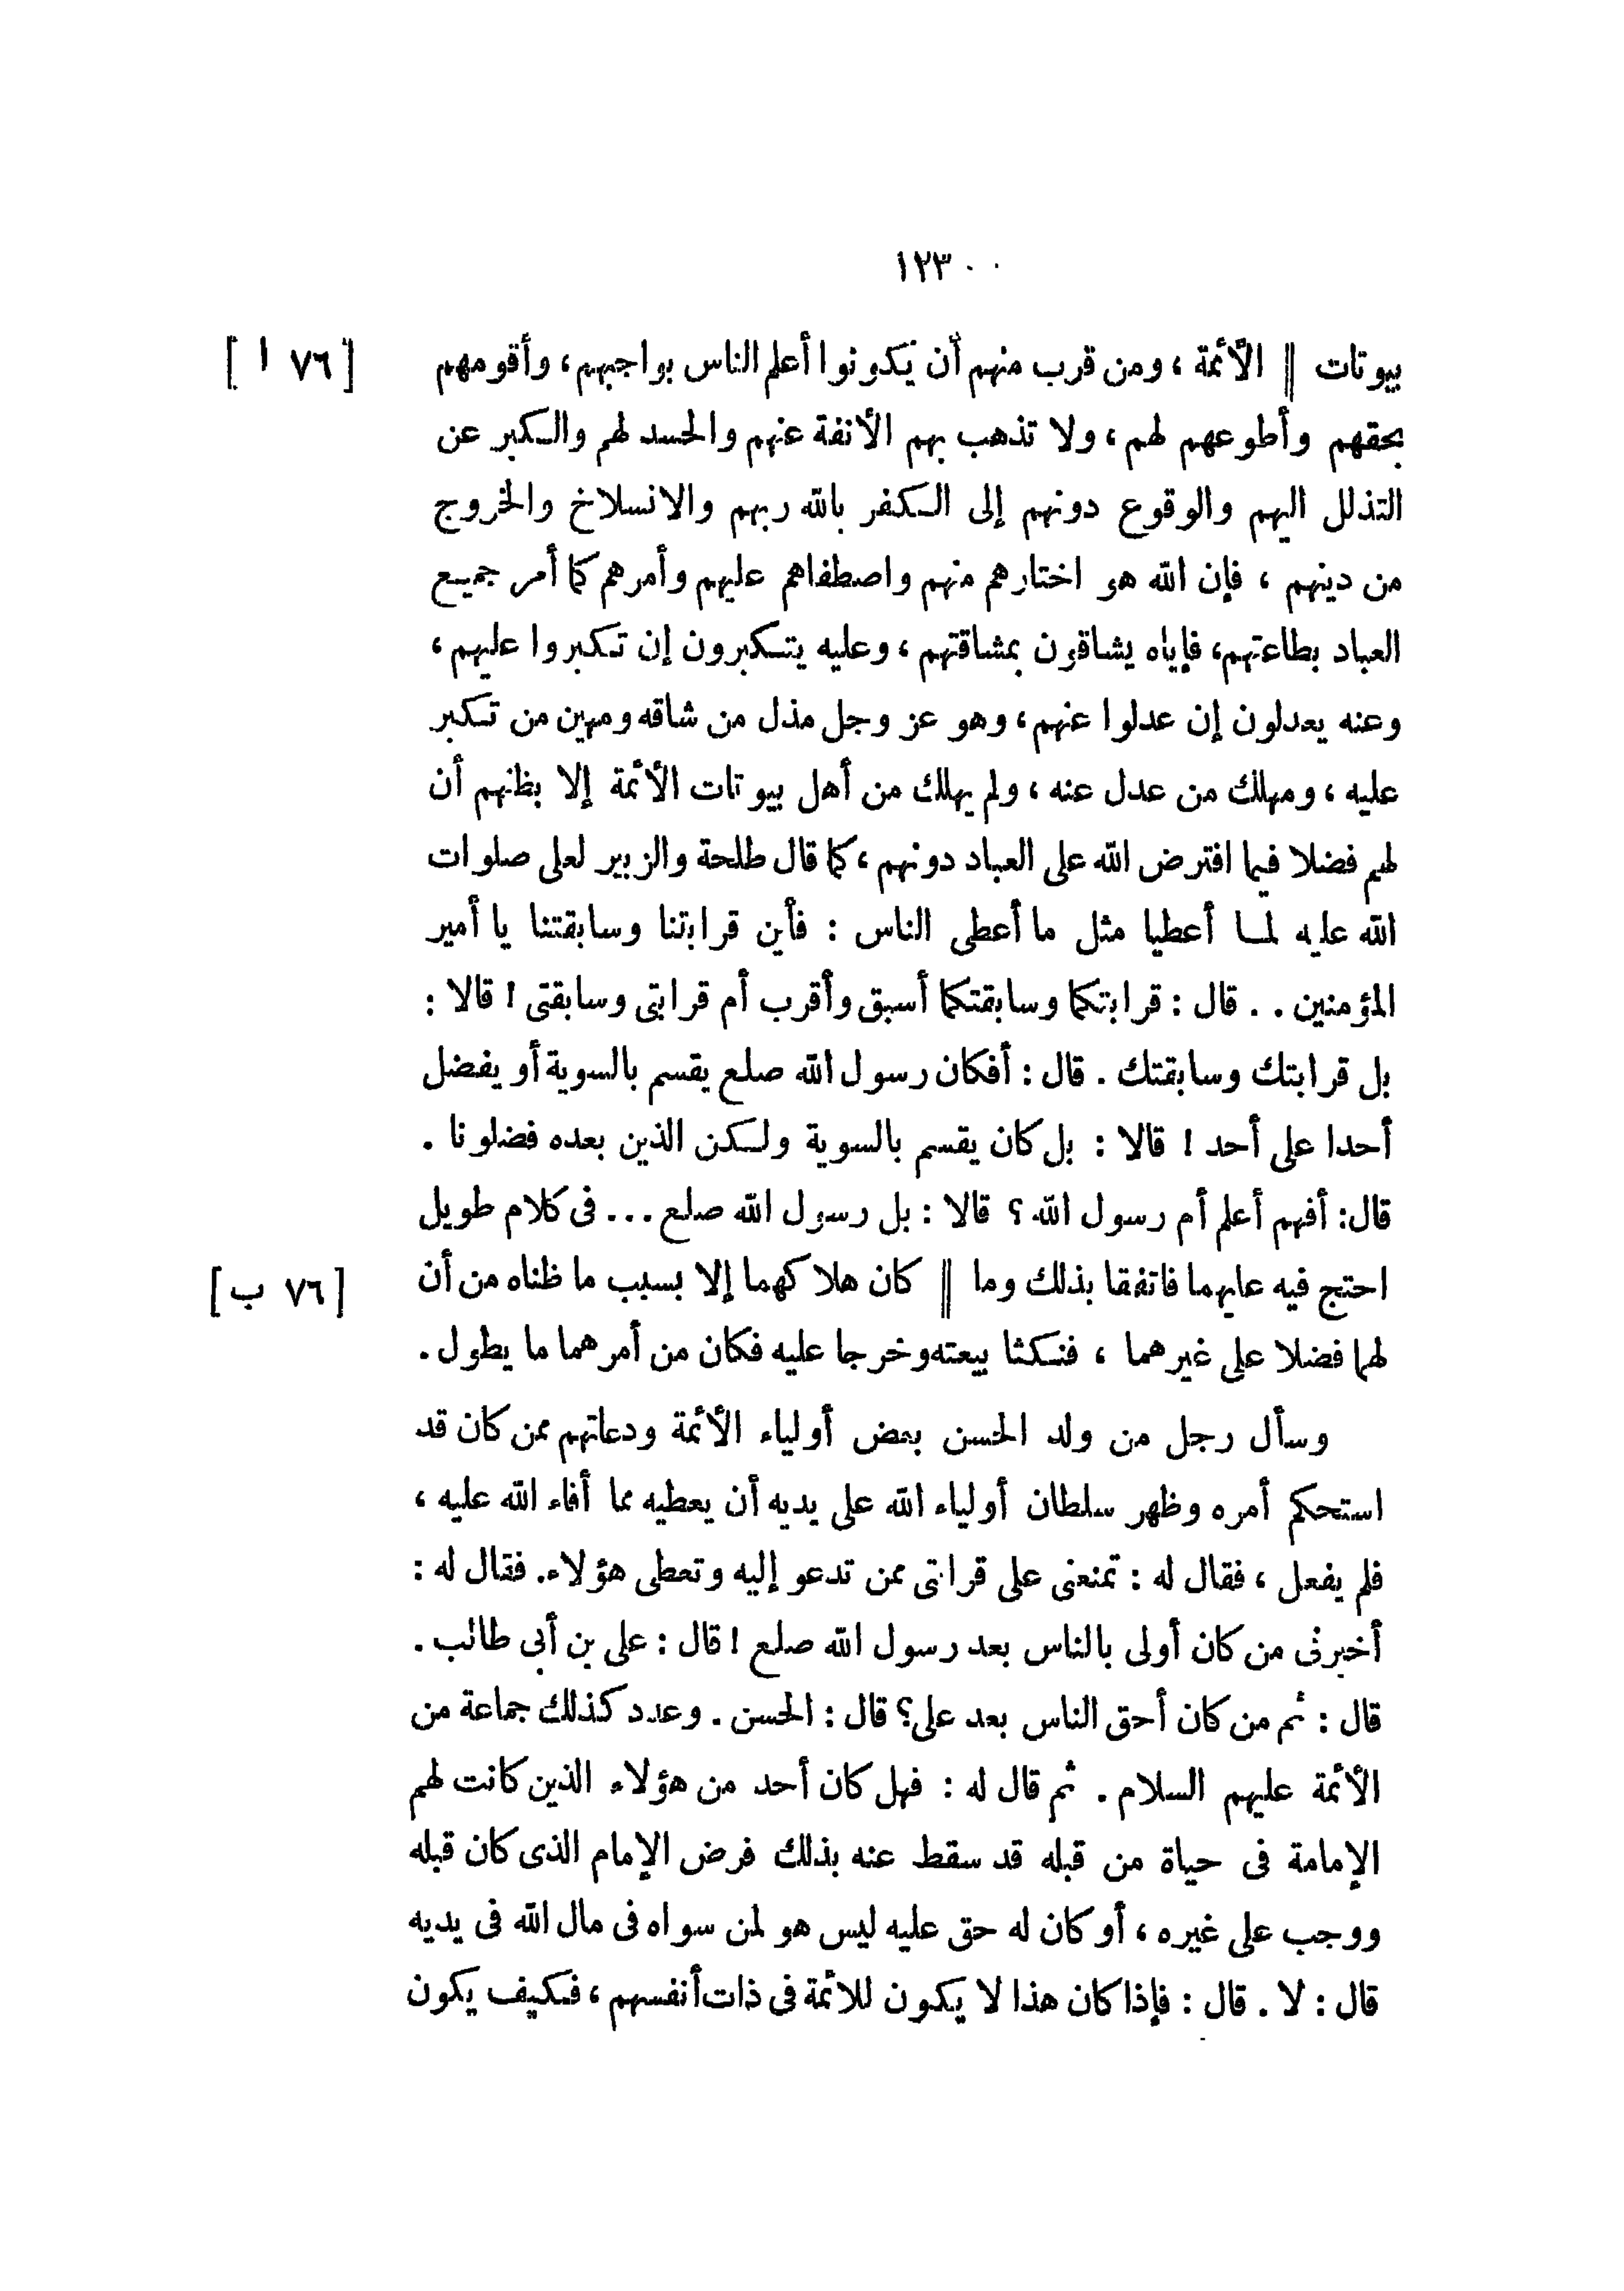 ١٢٣
بيوتات || الأئمة ، ومن قرب منهم أن يكونوا أعلم الناس بواجبهم ، وأقومهم [ ٧٦ ا ]
بحقهم وأطوعهم لهم ، ولا تذهب بهم الأنفة عنهم والحسد لهم والكبر عن
التذلل اليهم والوقوع دونهم إلى الكفر بالله ربهم والانسلاخ والخروج
من دينهم ، فإن الله هو اختارهم منهم واصطفاهم عليهم وأمرهم كما أمر جميع
العباد بطاعتهم، فإياه يشاقون بمشاقتهم ، وعليه يتكبرون إن تكبروا عليهم ،
وعنه يعدلون إن عدلوا عنهم ، وهو عز وجل مذل من شاقه ومهين من تكبر
عليه ، ومهلك من عدل عنه ، ولم يهلك من أهل بيوتات الأئمة إلا بظنهم أن
لهم فضلا فيما افترض الله على العباد دونهم ، كما قال طلحة والزبير لعلى صلوات
الله عليه لما أعطيا مثل ما أعطى الناس : فأين قرابتنا وسابقتنا يا أمير
المؤمنين . . قال : قرابتكما وسابقتكما أسبق وأقرب أم قرابتى وسابقتى ! قالا :
بل قرابتك وسابقتك . قال : أفكان رسول الله صلع يقسم بالسوية أو يفضل
أحدا على أحد ! قالا : بل كان يقسم بالسوية ولكن الذين بعده فضلونا .
قال : أفهم أعلم أم رسول الله ؟ قالا : بل رسول الله صلع ... فى كلام طويل
احتج فيه عليهما فاتفقا بذلك وما || كان هلاكهما إلا بسبب ما ظناه من أن [ ٧٦ ب ]
لهما فضلا على غيرهما ، فنكثا بيعته وخرجا عليه فكان من أمرهما ما يطول .
وسأل رجل من ولد الحسن بعض أولياء الأئمة ودعاتهم ممن كان قد
استحكم أمره وظهر سلطان أولياء الله على يديه أن يعطيه مما أفاء الله عليه ،
فلم يفعل ، فقال له : تمنعنى على قرابتى ممن تدعو إليه وتعطى هؤلاء. فقال له :
أخبرنى من كان أولى بالناس بعد رسول الله صلع ! قال : على بن أبى طالب .
قال : ثم من كان أحق الناس بعد على؟ قال : الحسن . وعدد كذلك جماعة من
الأئمة عليهم السلام . ثم قال له : فهل كان أحد من هؤلاء الذين كانت لهم
الإمامة فى حياة من قبله قد سقط عنه بذلك فرض الإمام الذى كان قبله
ووجب على غيره ، أو كان له حق عليه ليس هو لمن سواه فى مال الله فى يديه
قال : لا . قال : فإذا كان هذا لا يكون للائمة فى ذات أنفسهم ، فكيف يكون